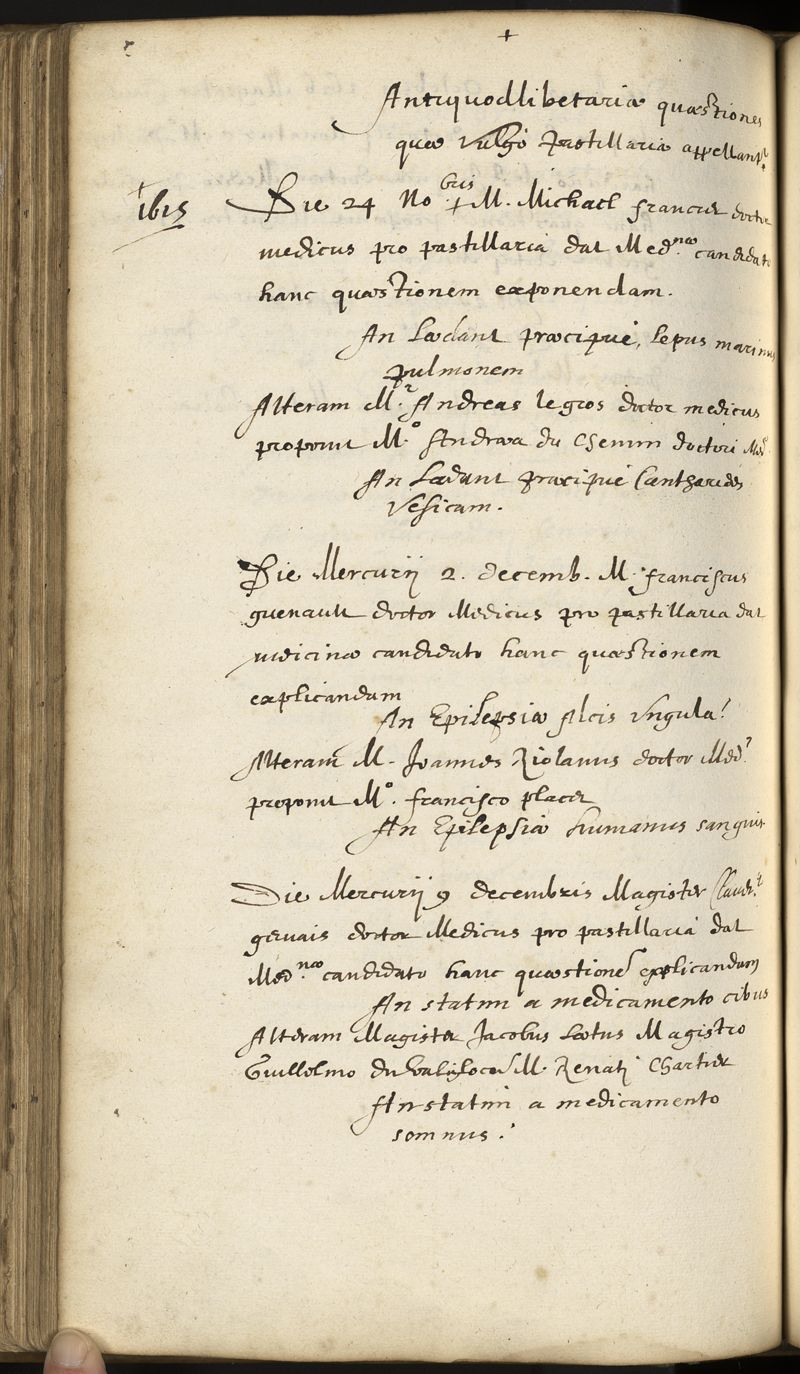 +
Antiquodlibetariæ quæstiones
quæ vulgò pastillariæ appellantr
1615 Die 24 Nobris + M. Michael francier doctor
medicus pro pastillaria dat Med.næ candidato
hanc quæstionem exponendam.
An Lædant præcipuè, lepus marinus
pulmonem
Alteram M.r Andreas legros doctor medicus
proponit M.o Andreæ du Chemin doctori Med
An Lædunt præcipuè Cantharides
Vesicam.
Die Mercurij 2. decemb. M. franciscus
guenault doctor Medicus pro pastillaria dat
medicinæ candidato hanc quæstionem
explicandam
An Epilepsiæ Alcis Ungula?
Alteram M. Joannes Riolanus doctor Med.
proponit M.o francisco placet
An Epilepsiæ humanus sanguis
Die Mercurij 9 decembris Magister
gervais doctor Medicus pro pastillaria dat
Med.næ candidato hanc quæstione explicandam
An statim a medicamento cibus
Alteram Magister Jacobus Lætus Magistro
Guillelmo du val loco M. Renati Chartier
An statim a medicamento
somnus.